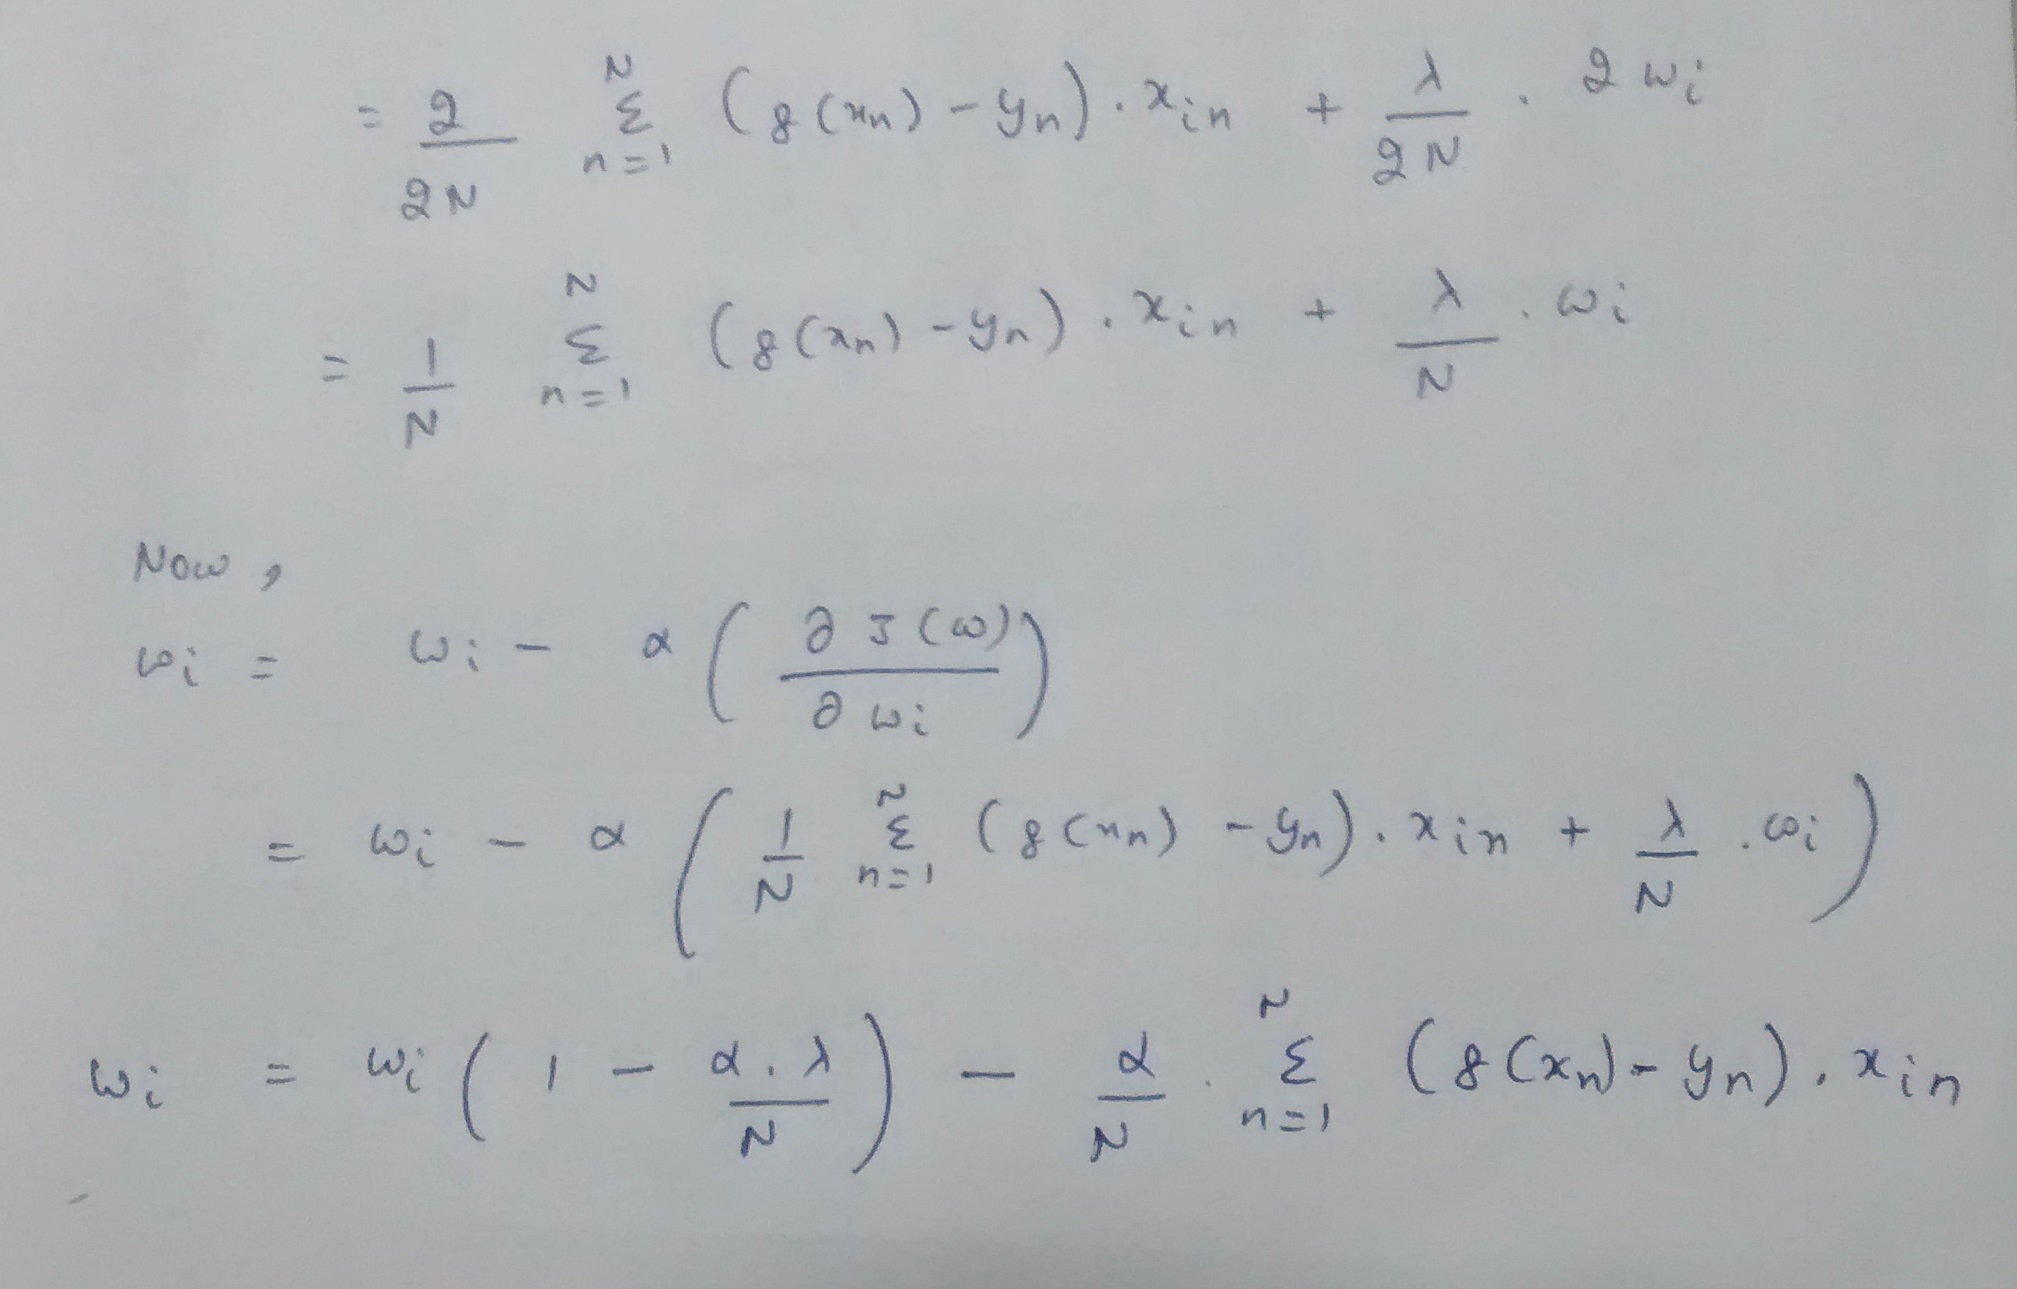 = 2/2N Σ_{n=1}^{N} (g(xn) - yn) . xin + λ/2N . 2wi
= 1/N Σ_{n=1}^{N} (g(xn) - yn) . xin + λ/N . wi
Now,
wi = wi - α (∂J(w)/∂wi)
= wi - α (1/N Σ_{n=1}^{N} (g(xn) - yn) . xin + λ/N . wi)
wi = wi (1 - α.λ/N) - α/N . Σ_{n=1}^{N} (g(xn) - yn) . xin